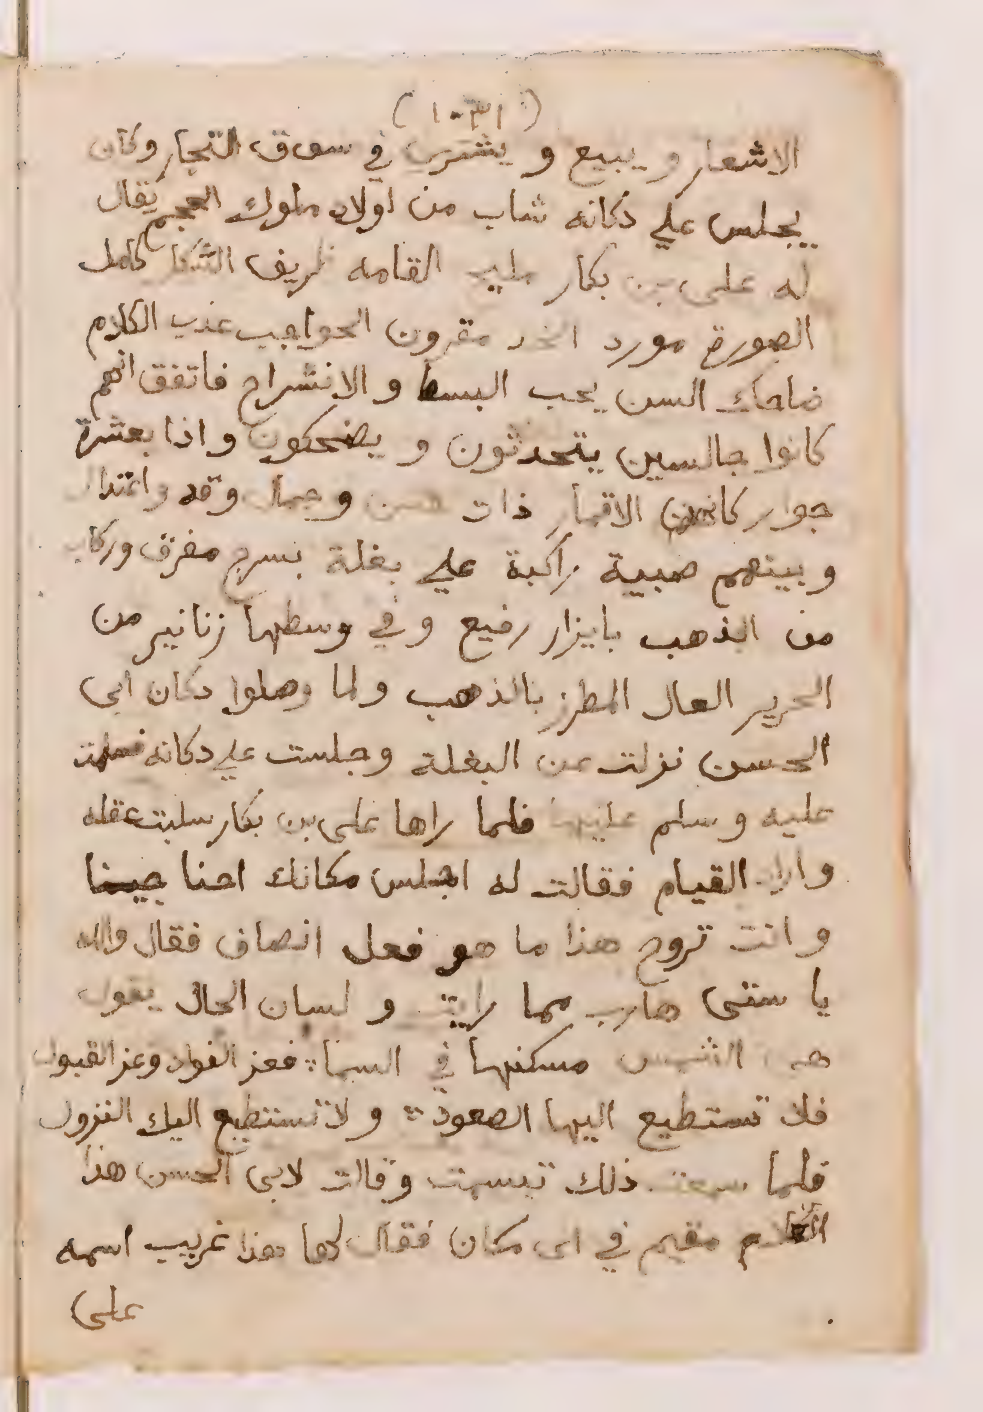 (١٠٣١)
الاشعار و يبيع و يشترى في سوق التجار وكان
يجلس علي دكانه شاب من اولاد ملوك العجم يقال
له على بن بكار مليح القامه ظريف الشكل كامل
الصورة مورد الخد مقرون الحواجب عذب الكلام
ضاحك السن يحب البسط و الانشراح فاتفق انهم
كانوا جالسين يتحدثون و يضحكون واذا بعشرة
جوار كانهن الاقمار ذات حسن وجمال وقد واعتدال
وبينهم صبية راكبة علي بغلة بسرج مغرق وركاب
من الذهب بايزار رفيع وفي وسطها زنانير من
الحرير العال المطرز بالذهب ولما وصلوا دكان ابى
الحسن نزلت عن البغلة وجلست علي دكانه فسلمت
عليه وسلم عليها فلما راها على بن بكار سلبت عقله
واراد القيام فقالت له اجلس مكانك احنا جينا
وانت تروح هذا ما هو فعل انصاف فقال والله
يا ستى هارب مما رايت و لسان الحال يقول
هى الشمس مسكنها في السما : فعز الفواد وعز القبول
فلا تستطيع اليها الصعود : ولا تستطيع اليك النزول
فلما سمعت ذلك تبسمت وقالت لابى الحسن هذا
مقيم في اى مكان فقال لها هذا غريب اسمه
على